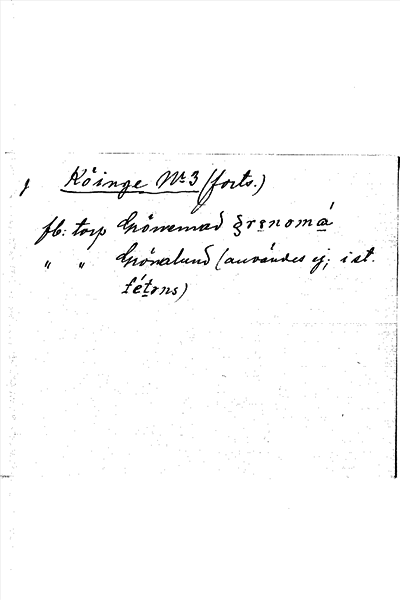 Köinge Nr 3 (forts.)
fb: torp Grönemad ʒrenomá
" " Grönalund (användes ej; i st.
fétons)